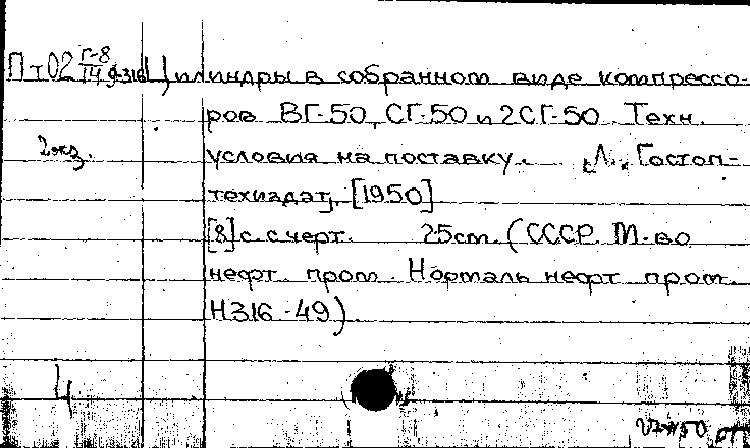 Пт02 Г-8/14 9316 Цилиндры в собранном виде компрессо-
ров ВГ-50, СГ-50 и 2СГ-50. Техн.
2 экз. условия на поставку. Л., Гостоп-
техиздат, [1950]
[8] с. с черт. 25 cm. (СССР. М-во
нефт. пром. Нормаль нефт. пром.
Н316-49).
Ц